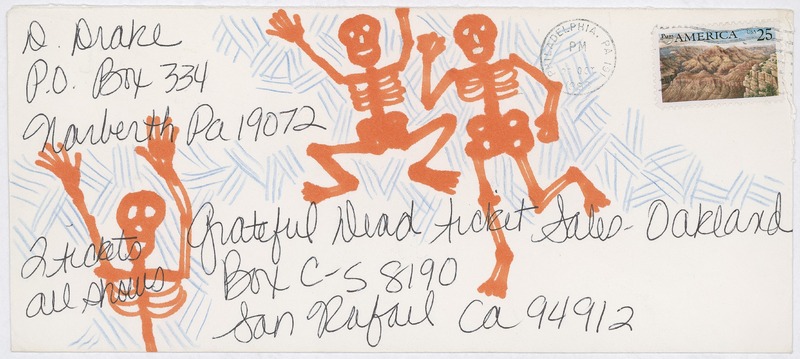 D. Drake
P.O. Box 334
Narberth Pa 19072
PHILADELPHIA, PA
PM
AMERICA USA 25
2 tickets
all shows
Grateful Dead Ticket Sales - Oakland
Box C-S 8190
San Rafael Ca 94912